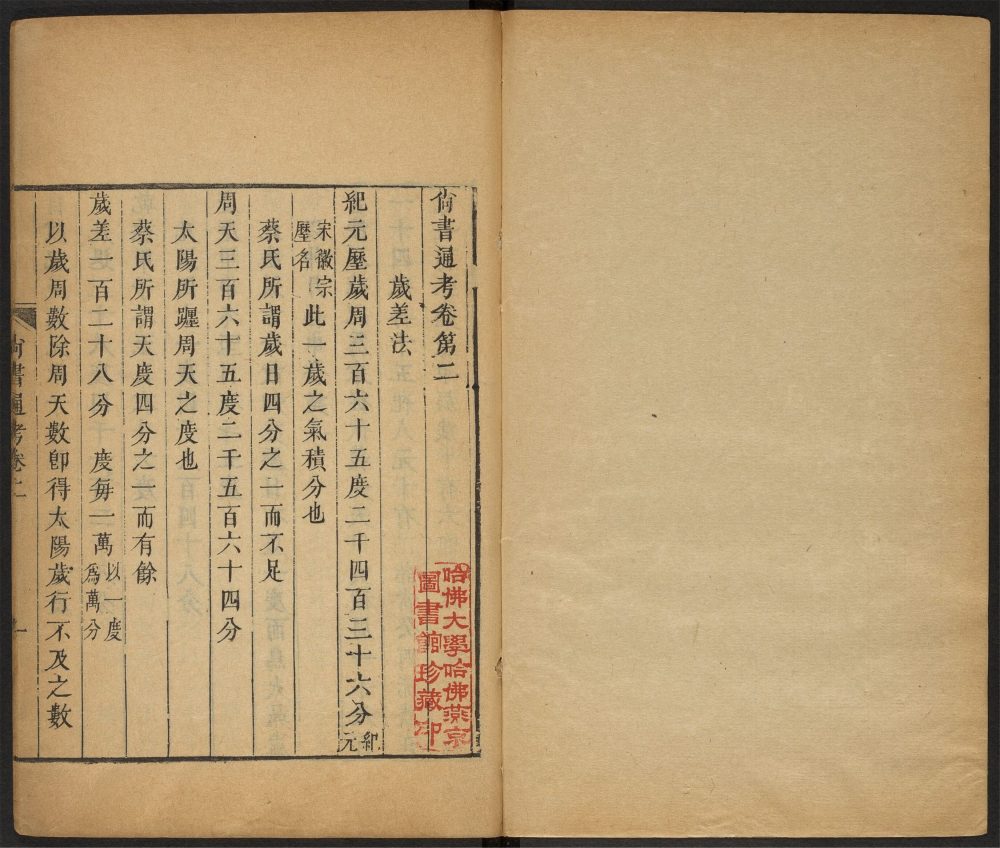 尚書通考卷第二
歲差法
紀元曆歲周三百六十五度二千四百三十六分紀元
宋徽宗曆名此一歲之氣積分也
蔡氏所謂歲日四分之一而不足
周天三百六十五度二千五百六十四分
太陽所躔周天之度也
蔡氏所謂天度四分之一而有餘
歲差一百二十八分度每一萬以一度為萬分
以歲周數除周天數卽得太陽歲行不及之數
尚書通考卷二
一
哈佛大學哈佛燕京
圖書館珍藏印